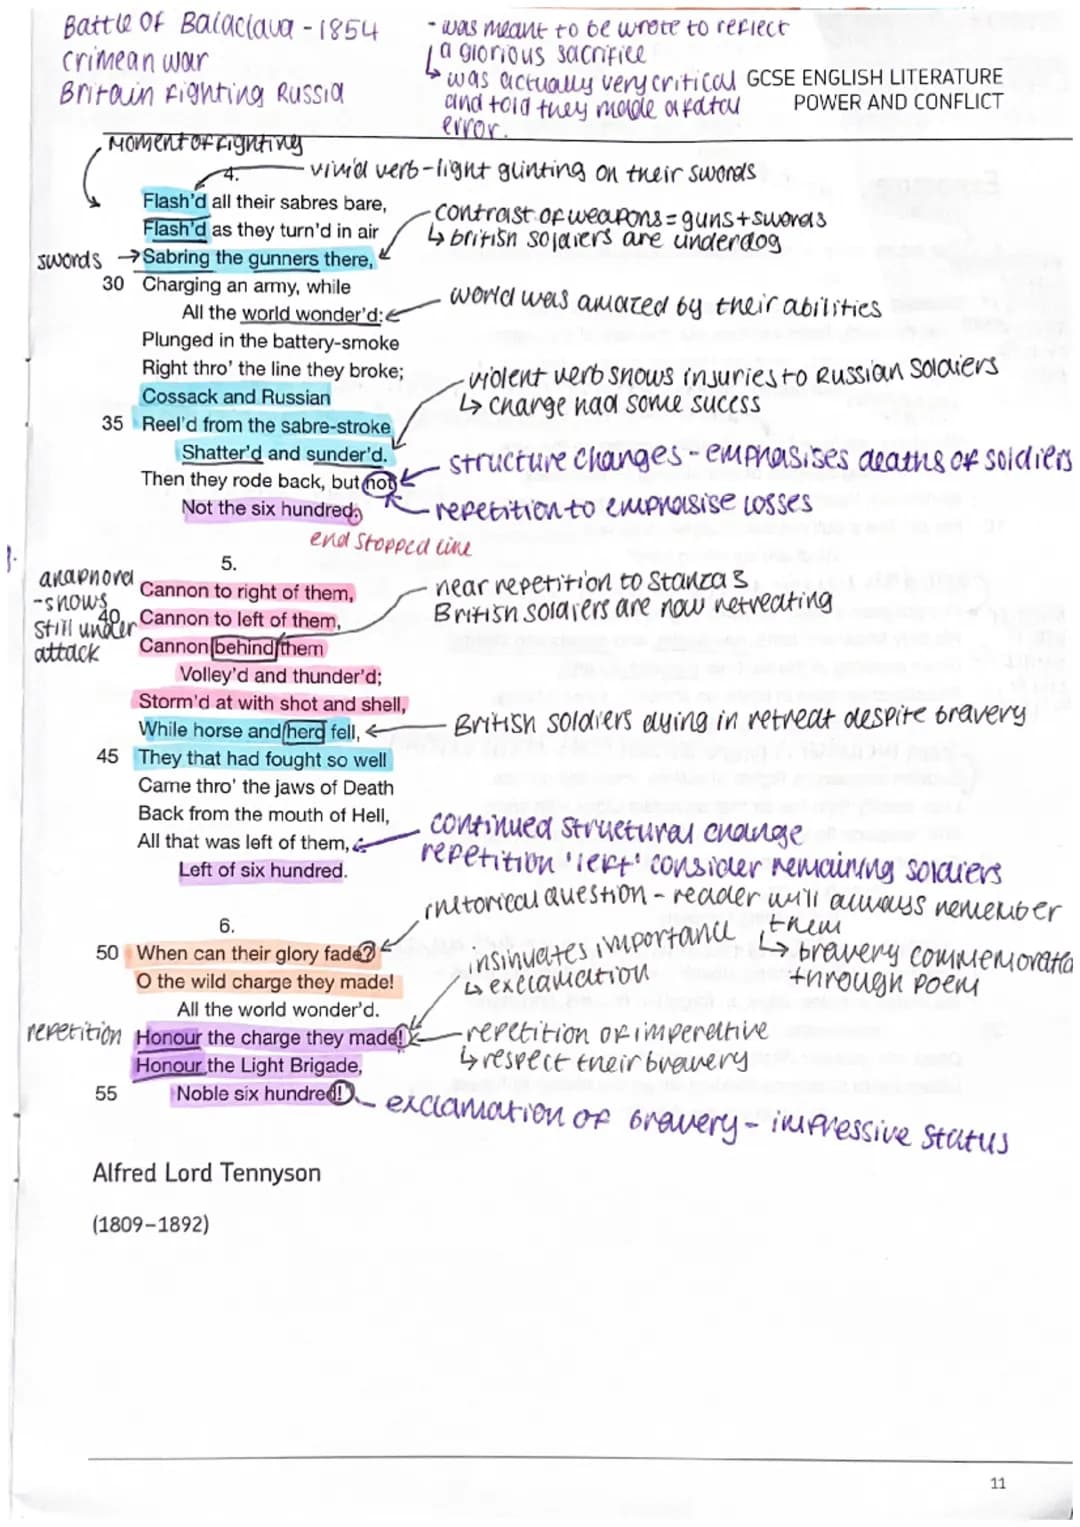 Battle of Balaclava - 1854
Crimean war
Britain fighting Russia
- was meant to be wrote to reflect
a glorious sacrifice
↳ was actually very critical
and told they made a fatal
error.
GCSE ENGLISH LITERATURE
POWER AND CONFLICT
Moment of fighting
4.
- vivid verb - light glinting on their swords
Flash'd all their sabres bare,
Flash'd as they turn'd in air
- contrast of weapons = guns + swords
↳ british soldiers are underdog
swords → Sabring the gunners there,
30 Charging an army, while
All the world wonder'd:
world was amazed by their abilities
Plunged in the battery-smoke
Right thro' the line they broke;
Cossack and Russian
- violent verb shows injuries to Russian Soldiers
↳ charge had some sucess
35 Reel'd from the sabre-stroke
Shatter'd and sunder'd.
structure changes - emphasises deaths of soldiers
Then they rode back, but not
Not the six hundred.
- repetition to emphasise losses
end stopped line
5.
anaphora
- shows
still under
attack
Cannon to right of them,
40 Cannon to left of them,
Cannon behind them
- near repetition to Stanza 3
British soldiers are now retreating
Volley'd and thunder'd;
Storm'd at with shot and shell,
While horse and hero fell,
British soldiers dying in retreat despite bravery
45 They that had fought so well
Came thro' the jaws of Death
Back from the mouth of Hell,
All that was left of them,
Left of six hundred.
continued structural change
repetition 'left' consider remaining soldiers
6.
rhetorical question - reader will always remember
them
↳ bravery commemorated
through poem
50 When can their glory fade?
O the wild charge they made!
All the world wonder'd.
- insinuates importance
↳ exclamation
repetition Honour the charge they made!
Honour the Light Brigade,
- repetition of imperative
↳ respect their bravery
55 Noble six hundred!
exclamation of bravery - impressive status
Alfred Lord Tennyson
(1809–1892)
11